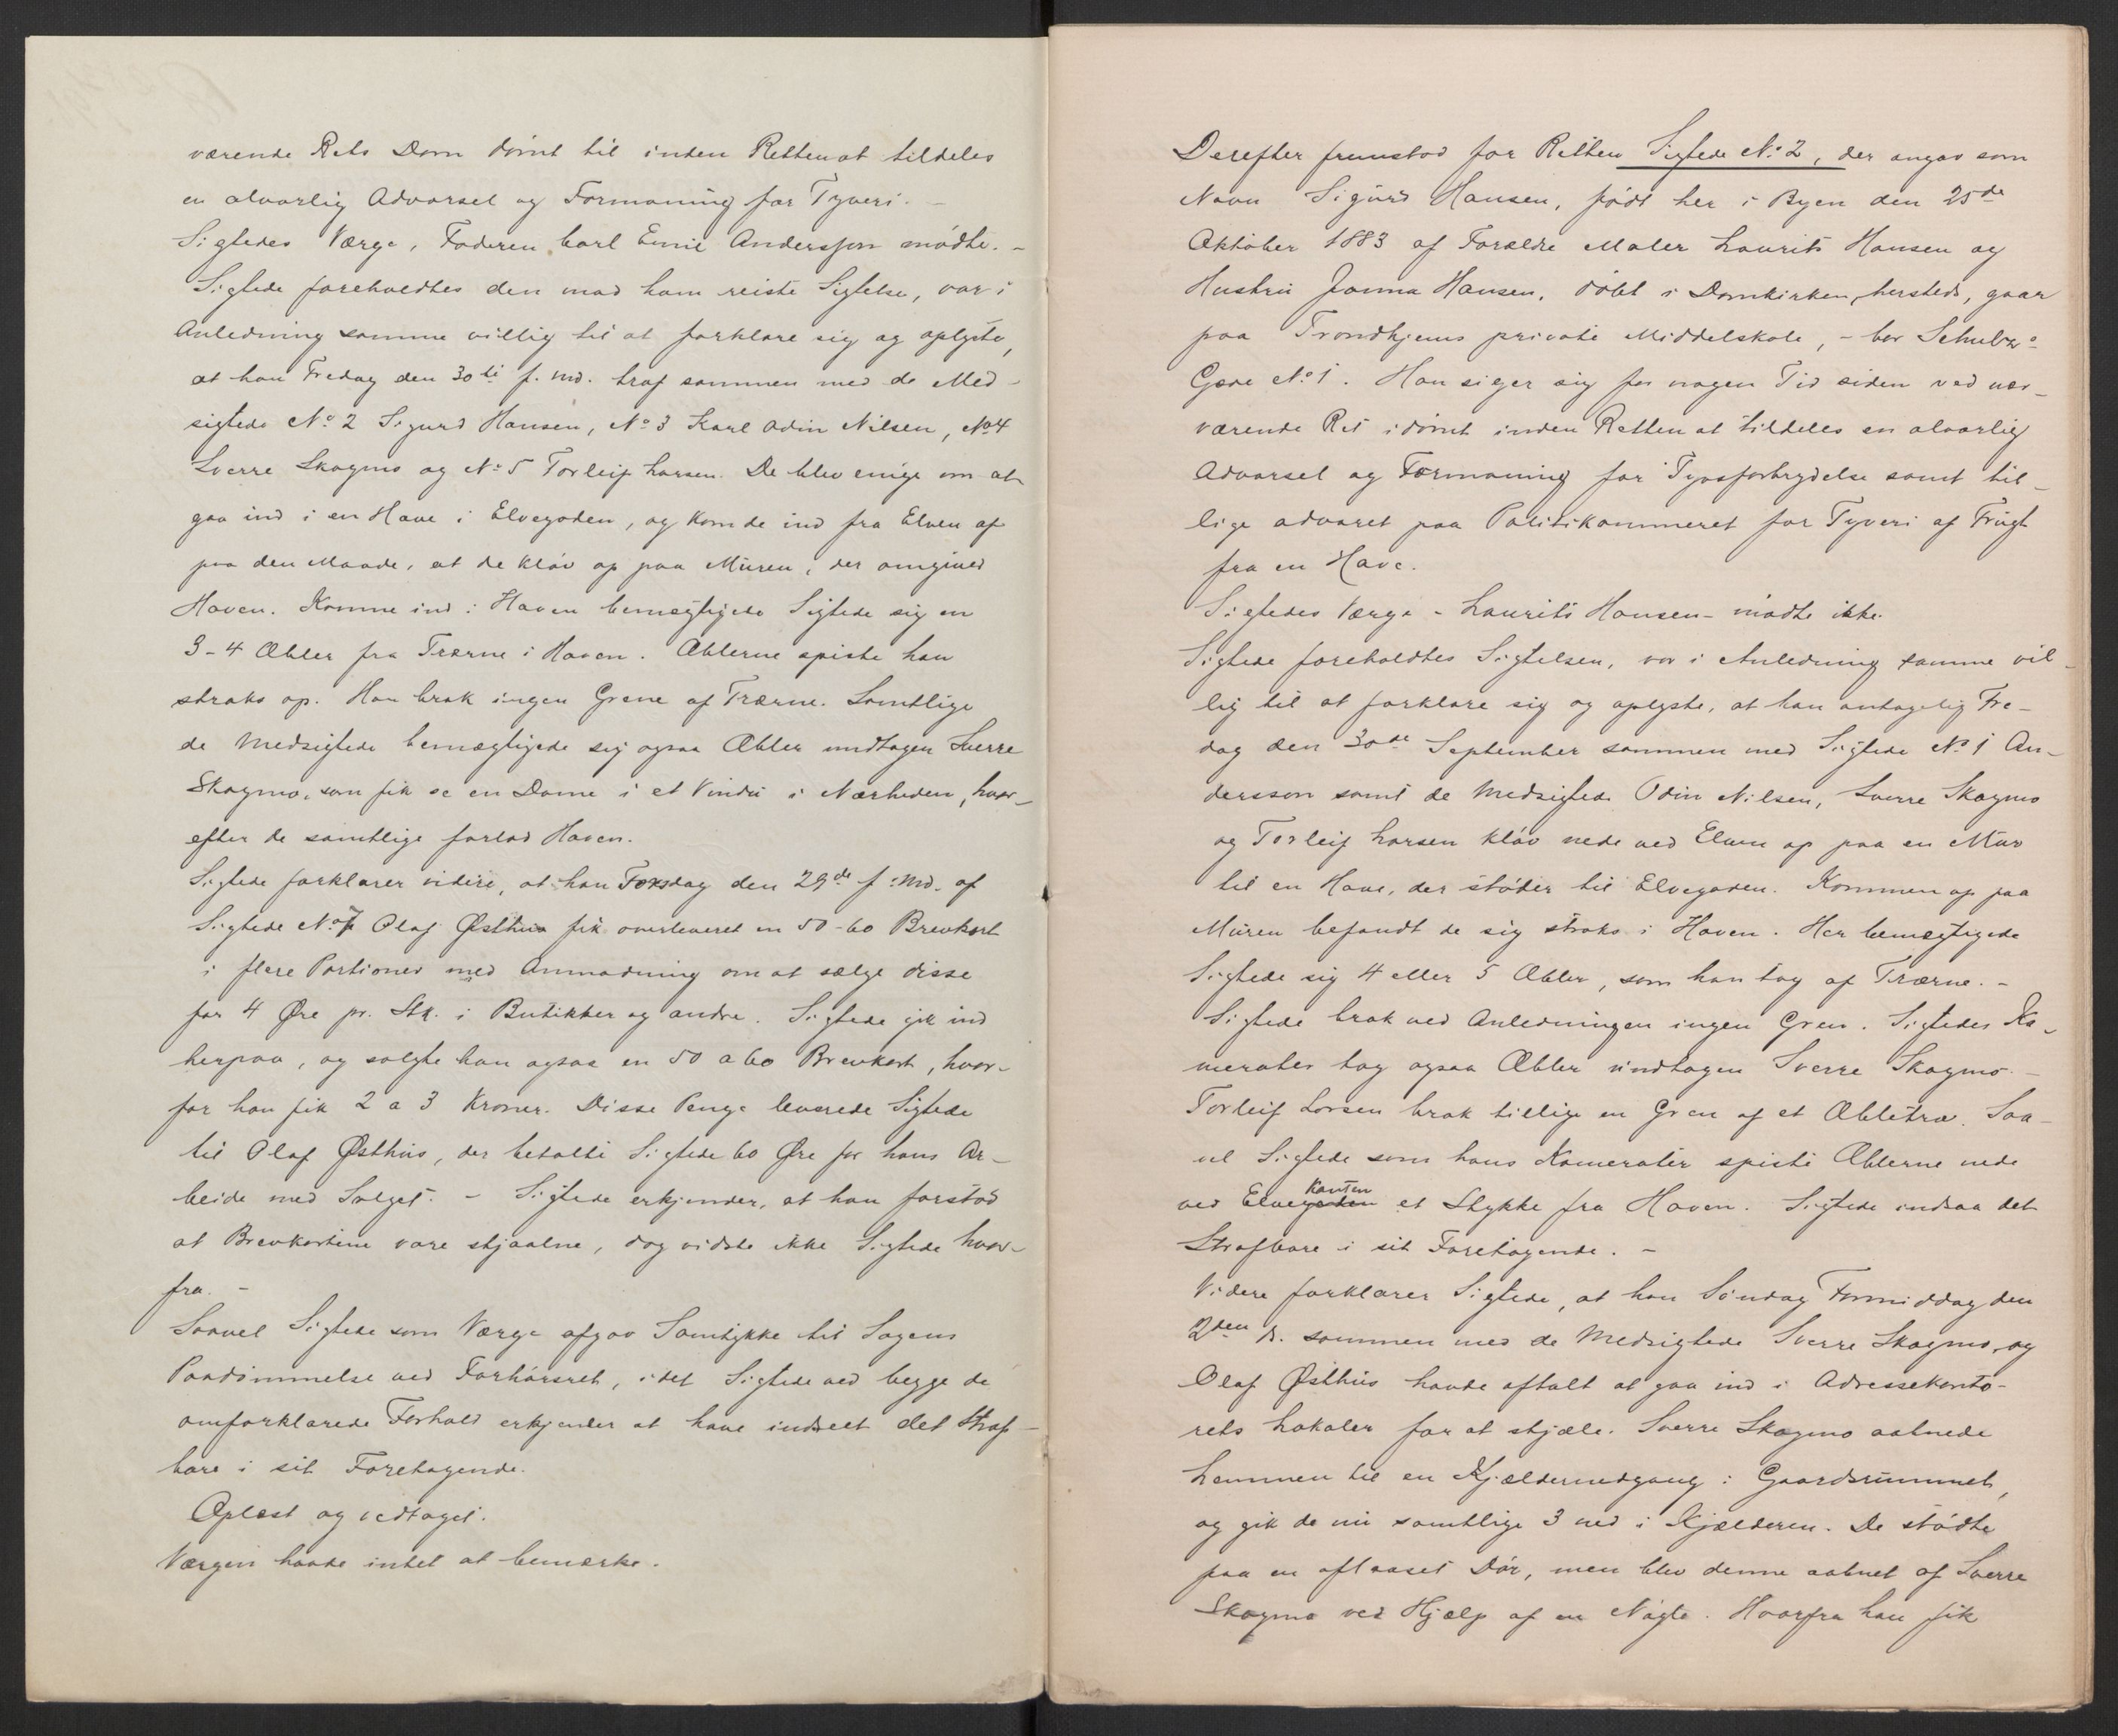 værende Rets Dom dømt til inden Retten at tildeles
en alvorlig Advarsel og Formaning for Tyveri. –
Sigtedes Værge, Faderen Carl Emil Andersson mødte. –
Sigtede foreholdtes den mod ham reiste Sigtelse, var i
Anledning samme villig til at forklare sig og oplyste,
at han Fredag den 30te f. Md. traf sammen med de Med-
sigtede No 2 Sigurd Hansen, No 3 Karl Odin Nilsen, No 4
Sverre Skagmo og No 5 Torleif Larsen. De blev enige om at
gaa ind i en Have i Elvegaden, og kom de ind fra Elven af
paa den Maade, at de kløv op paa Muren, der omgiver
Haven. Komne ind i Haven bemægtigede Sigtede sig en
3-4 Æbler fra Trærne i Haven. Æblerne spiste han
straks op. Han brak ingen Grene af Trærne. Samtlige
de Medsigtede bemægtigede sig ogsaa Æbler undtagen Sverre
Skagmo, som fik se en Dame i et Vindu i Nærheden, hvor-
efter de samtlige forlod Haven.
Sigtede forklarer videre, at han Torsdag den 29de f. Md. af
Sigtede No 7 Olaf Østhus fik overleveret en 50-60 Brevkort
i flere Portioner med Anmodning om at sælge disse
for 4 Øre pr. Stk. i Butikker og andre. Sigtede gik ind
herpaa, og solgte han ogsaa en 50 a 60 Brevkort, hvor-
for han fik 2 a 3 Kroner. Disse Penge leverede Sigtede
til Olaf Østhus, der betalte Sigtede 60 Øre for hans Ar-
beide med Salget. – Sigtede erkjender, at han forstod
at Brevkortene vare stjaalne, dog vidste ikke Sigtede hvor-
fra. –
Saavel Sigtede som Værge afgav Samtykke til Sagens
Paadømmelse ved Forhørsret, idet Sigtede ved begge de
omforklarede Forhold erkjender at have indseet det Straf-
bare i sit Foretagende.
Oplæst og vedtaget.
Værgen havde intet at bemærke.
Derefter fremstod for Retten Sigtede No 2, der angav som
Navn Sigurd Hansen, født her i Byen den 25de
Oktober 1883 af Forældre Maler Laurits Hansen og
Hustru Janna Hansen, døbt i Domkirken, hersteds, gaar
paa Trondhjems private Middelskole, – bor Schulz's
Gade No 1. Han siger sig for nogen Tid siden ved nær-
værende Ret idømt inden Retten at tildeles en alvorlig
Advarsel og Formaning for Tyvsforbrydelse samt til-
lige advaret paa Politikammeret for Tyveri af Frugt
fra en Have.
Sigtedes Værge – Laurits Hansen – mødte ikke.
Sigtede foreholdtes Sigtelsen, var i Anledning samme vil-
lig til at forklare sig og oplyste, at han antagelig Fre-
dag den 30de September sammen med Sigtede No 1 An-
dersson samt de Medsigtede Odin Nilsen, Sverre Skagmo
og Torleif Larsen kløv nede ved Elven op paa en Mur
til en Have, der støder til Elvegaden. Kommen op paa
Muren befandt de sig straks i Haven. Her bemægtigede
Sigtede sig 4 eller 5 Æbler, som han tog af Trærne. –
Sigtede brak ved Anledningen ingen Gren. Sigtedes Ka-
merater tog ogsaa Æbler undtagen Sverre Skagmo. –
Torleif Larsen brak tillige en Gren af et Æbletræ. Saa-
vel Sigtede som hans Kamerater spiste Æblerne nede
ved Elvegaden Kanten et Stykke fra Haven. Sigtede indsaa det
Strafbare i sit Foretagende. –
Videre forklarer Sigtede, at han Søndag Formiddag den
2den ds. sammen med de Medsigtede Sverre Skagmo, og
Olaf Østhus havde aftalt at gaa ind i Adressekonto-
rets Lokaler for at stjæle. Sverre Skagmo aabnede
Lemmen til en Kjældernedgang i Gaardsrummet,
og gik de nu samtlige 3 ned i Kjælderen. De stødte
paa en aflaaset Dør, men blev denne aabnet af Sverre
Skagmo ved Hjælp af en Nøgle. Hvorfra han fik